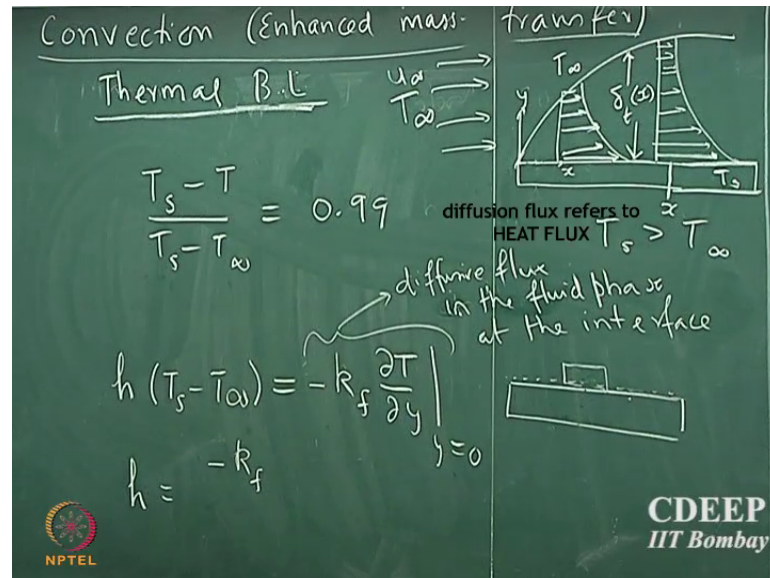 Convection (Enhanced mass- transfer)
Thermal B.L
u∞
T∞
T∞
y
δt(x)
x
Ts
x
(Ts - T)/(Ts - T∞) = 0.99
diffusion flux refers to
HEAT FLUX
Ts > T∞
diffusive flux
in the fluid phase
at the interface
h (Ts - T∞) = -kf ∂T/∂y |y=0
h = -kf
NPTEL
CDEEP
IIT Bombay